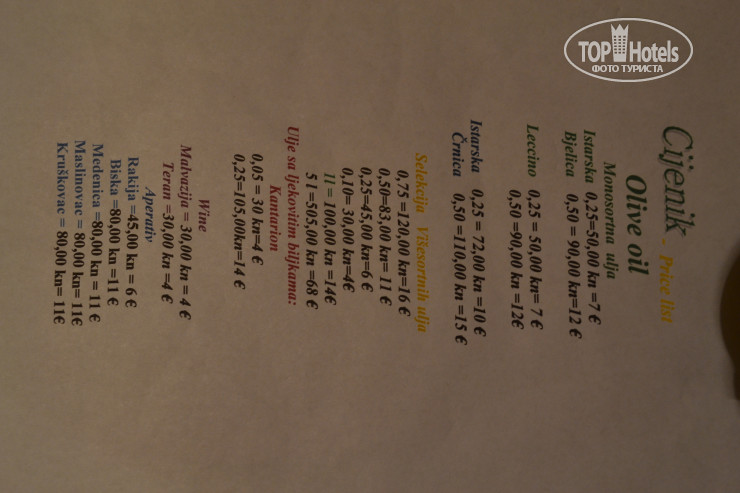 TOP Hotels
ФОТО ТУРИСТА
Cijenik - Price list
Olive oil
Monosortna ulja
Istarska 0,25=50,00 kn =7 €
Bjelica 0,50 = 90,00 kn=12 €
Leccino 0,25 = 50,00 kn= 7 €
0,50 =90,00 kn =12€
Istarska 0,25 = 72,00 kn =10 €
Črnica 0,50 =110,00 kn =15 €
Selekcija Višesortnih ulja
0,75 =120,00 kn=16 €
0,50=83,00 kn= 11 €
0,25=45,00 kn=6 €
0,10= 30,00 kn=4€
1l = 100,00 kn =14€
5 l =505,00 kn =68 €
Ulje sa ljekovitim biljkama:
Kantarion
0,05 = 30 kn=4 €
0,25=105,00kn=14 €
Wine
Malvazija = 30,00 kn = 4 €
Teran =30,00 kn =4 €
Aperativ
Rakija =45,00 kn = 6 €
Biska =80,00 kn =11 €
Medenica =80,00 kn = 11 €
Maslinovac = 80,00 kn= 11€
Kruškovac = 80,00 kn= 11€